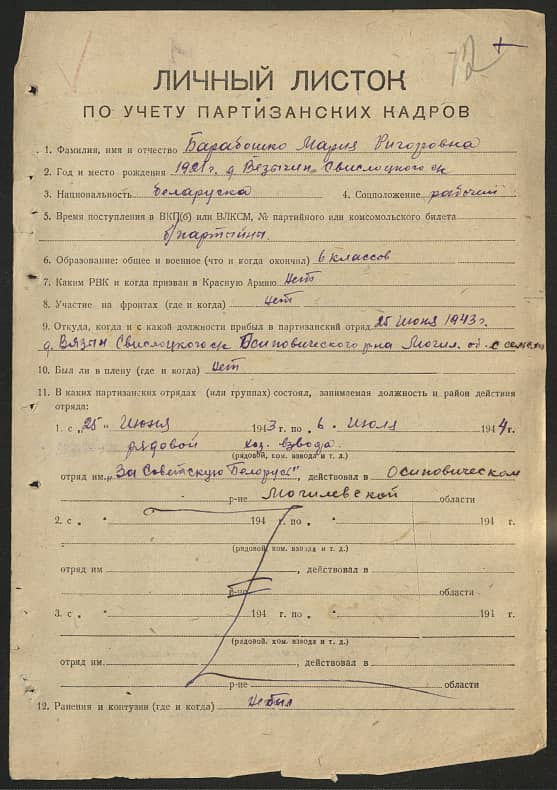 12 +
ЛИЧНЫЙ ЛИСТОК
ПО УЧЕТУ ПАРТИЗАНСКИХ КАДРОВ
1. Фамилия, имя и отчество Барабошко Мария Григоровна
2. Год и место рождения 1921 г. д. Везычин Свислоцкого с/с
3. Национальность беларуска 4. Соцположение рабочий
5. Время поступления в ВКП(б) или ВЛКСМ, № партийного или комсомольского билета
б/партыйны.
6. Образование: общее и военное (что и когда окончил) 6 классов
7. Каким РВК и когда призван в Красную Армию Нет
8. Участие на фронтах (где и когда) нет
9. Откуда, когда и с какой должности прибыл в партизанский отряд 25 июня 1943 г.
д. Вязын Свислоцкого с/с Осиповического р-на Могил. об. с семьей
10. Был ли в плену (где и когда) Нет
11. В каких партизанских отрядах (или группах) состоял, занимаемая должность и район действия
отряда:
1. с „25" Июня 1943 г. по „6" Июля 1944 г.
рядовой хоз. взвода.
(рядовой, ком. взвода и т. д.)
отряд им. „За Советскую Белорусь", действовал в Осиповическом
р-не Могилевской области
2. с „ " 194 г. по „ " 194 г.
(рядовой, ком. взвода и т. д.)
отряд им , действовал в
р-не области
3. с „ " 194 г. по „ " 194 г.
(рядовой, ком. взвода и т. д.)
отряд им. , действовал в
р-не области
12. Ранения и контузии (где и когда) Не был